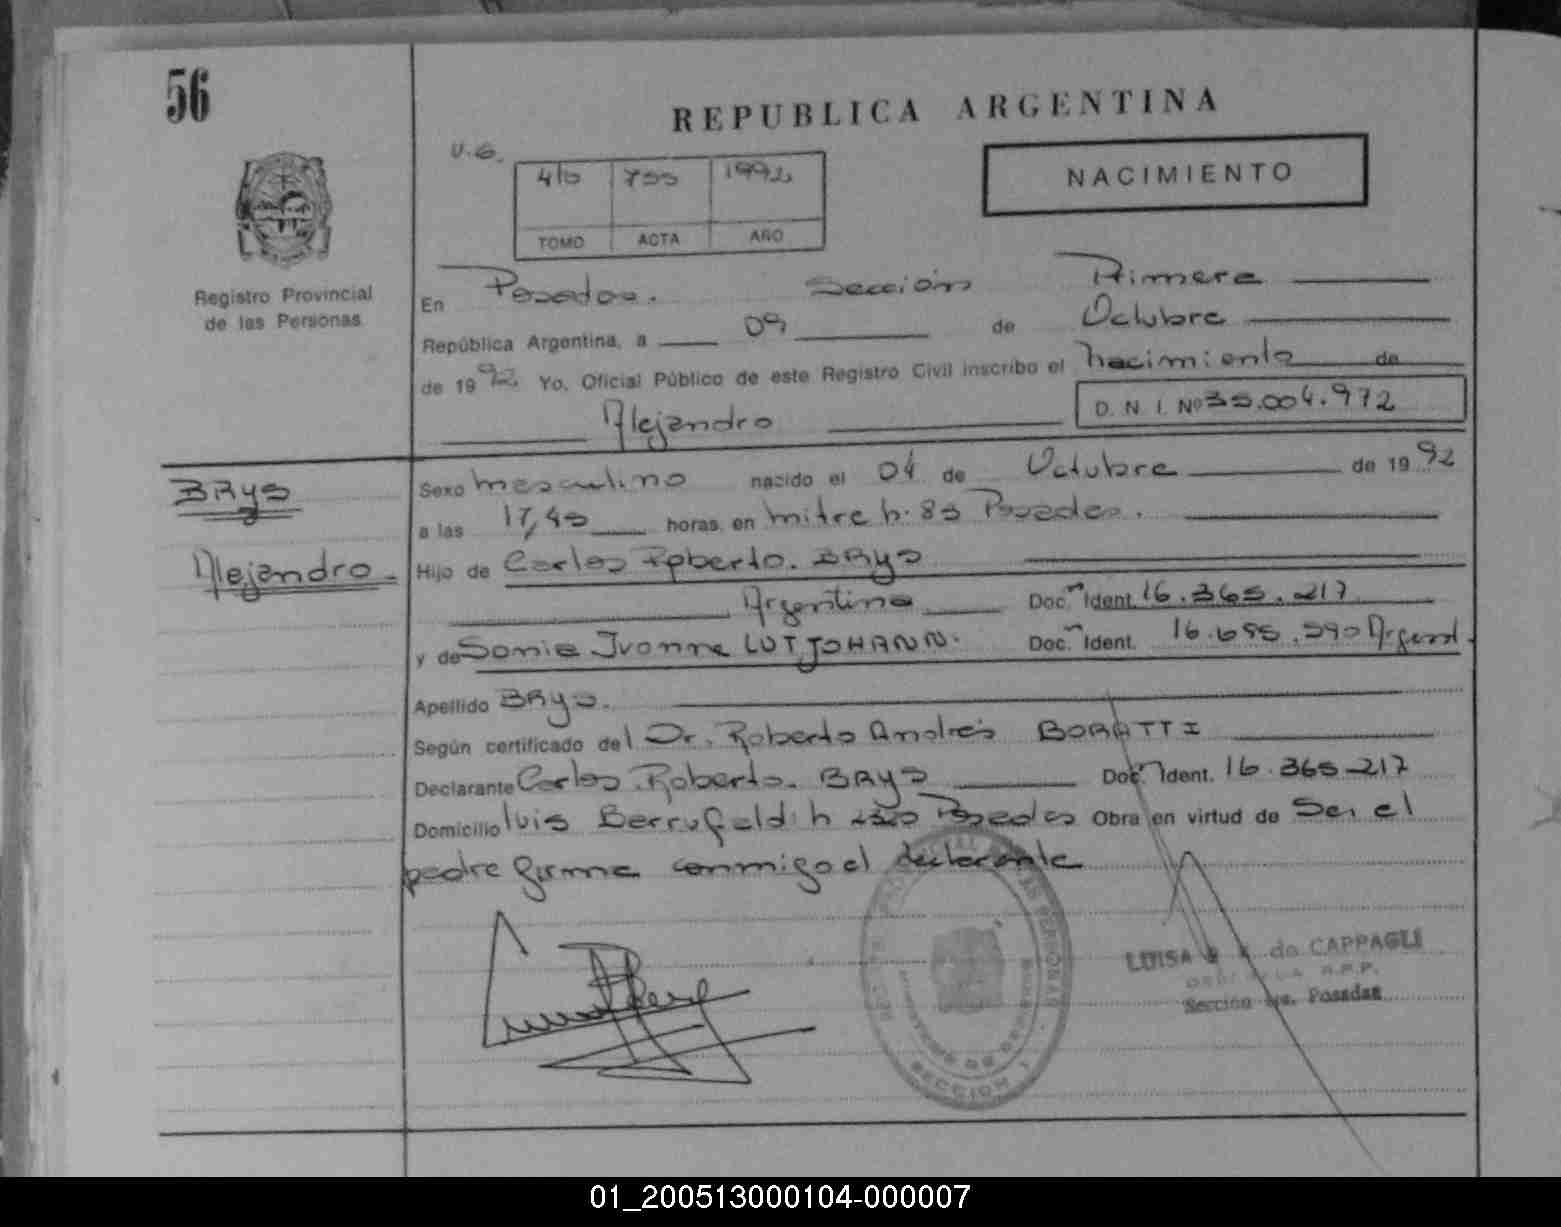 56
REPUBLICA ARGENTINA
NACIMIENTO
V.G.
755 1992
TOMO ACTA AÑO
Registro Provincial
de las Personas
En Posadas. Sección Primera
República Argentina, a 09 de Octubre
de 1992 Yo, Oficial Público de este Registro Civil inscribo el nacimiento de
Alejandro D. N. I. Nº 35.004.972
BRYS
Alejandro
Sexo masculino nacido el 04 de Octubre de 1992
a las 17,45 horas, en mitre h. 85 Posadas.
Hijo de Carlos Roberto. BRYS
Argentino Doc. Ident. 16.365.217
y de Sonia Ivonne LUTJOHANN. Doc. Ident. Argent.
Apellido BRYS.
Según certificado del Dr. Roberto Andrés BORATTI
Declarante Carlos. Roberto. BRYS Doc. Ident. 16.365.217
Domicilio Luis h Posadas Obra en virtud de Ser el
padre firma conmigo el declarante
LUISA de CAPPAGLI
R.P.P.
Sección Posadas
SECCION 1
01_200513000104-000007